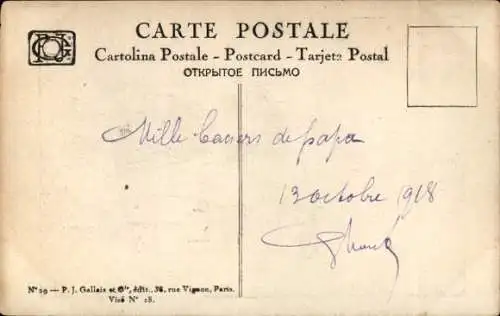 CARTE POSTALE
Cartolina Postale - Postcard - Tarjeta Postal
ОТКРЫТОЕ ПИСЬМО
Mille baisers de papa
13 octobre 1918
N° 29 — P. J. Gallais et Cie, édit., 38, rue Vignon, Paris.
Visé N° 28.